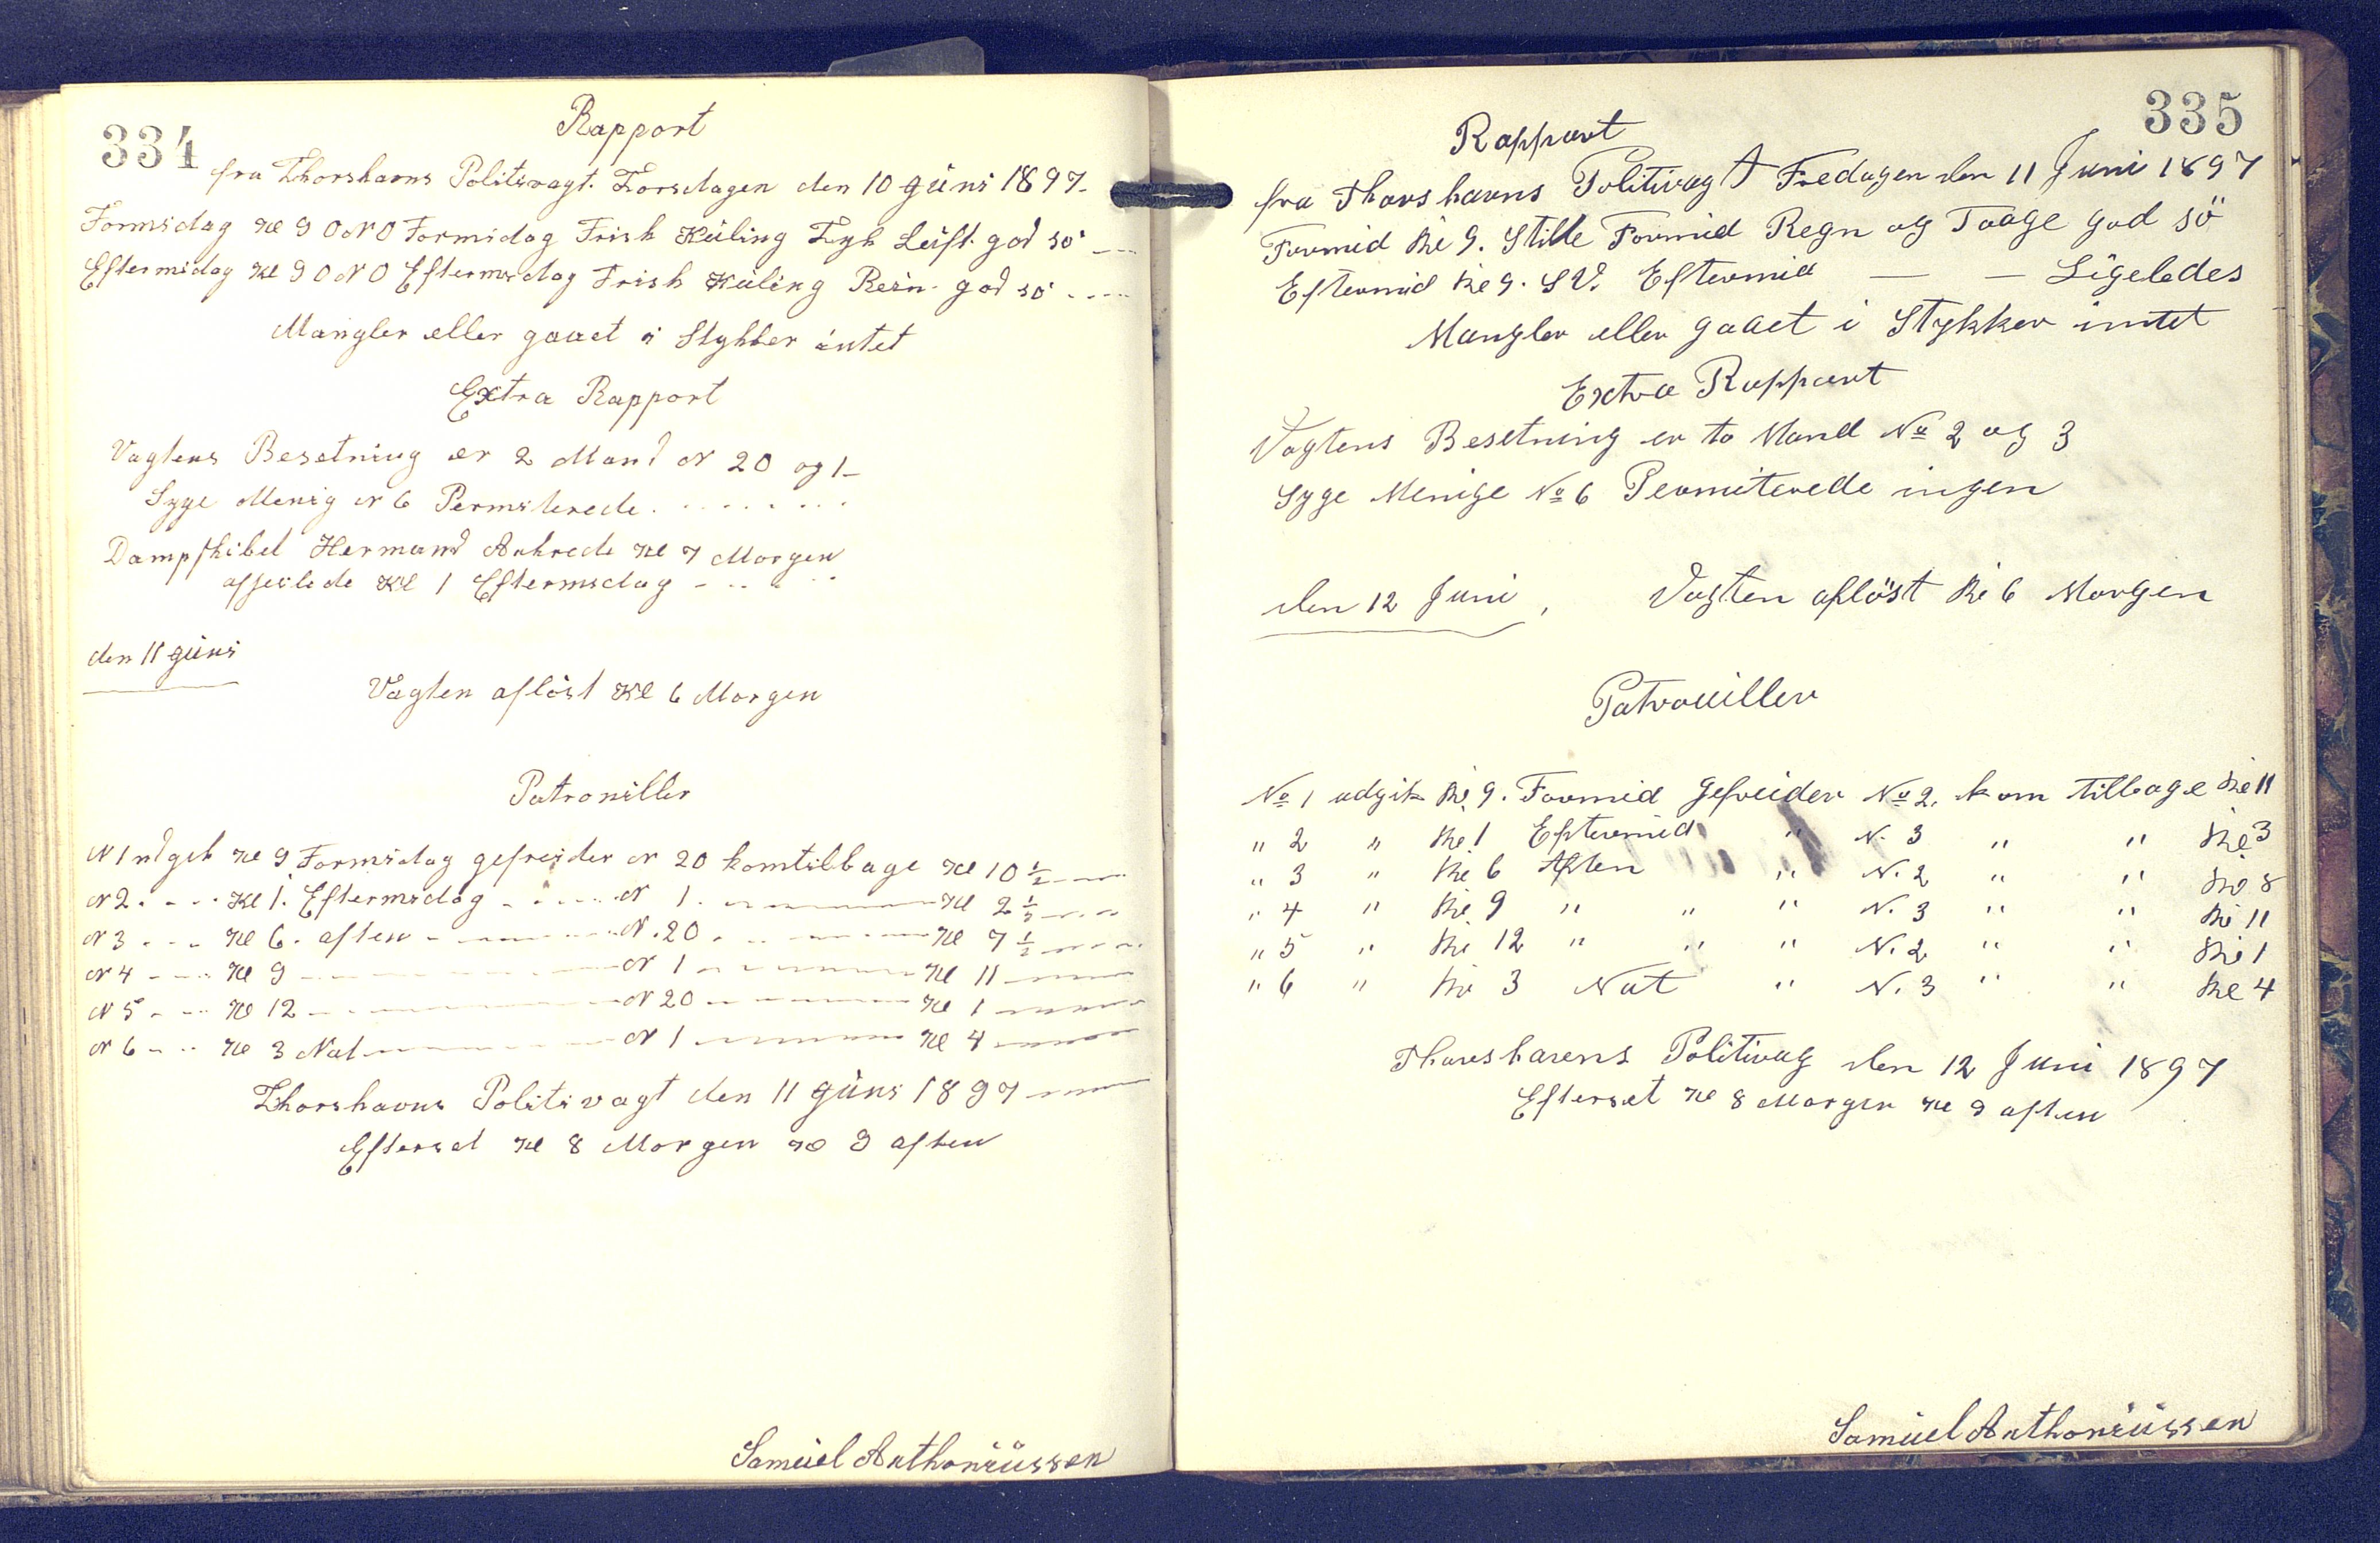 334
Rapport
fra Thorshavns Politivagt. Torsdagen den 10 Juni 1897.
Formidag Kl 9 O N O Formidag Frisk Kuling Tyk Luft. god sö
Eftermidag Kl 9 O N O Eftermidag Frisk Kuling Rein god sö
Mangler eller gaaet i Stykker intet
Extra Rapport
Vagtens Besetning er 2 Mand N 20 og 1
Syge Menig N 6 Permiterede
Dampskibet Hermand Ankrede Kl 7 Morgen
afseilede Kl 1 Eftermidag
den 11 Juni
Vagten aflöst Kl 6 Morgen
Patrouiller
N 1 udgik Kl 9 Formidag gefreider N 20 kom tilbage Kl 10 1/2
N 2 Kl 1. Eftermidag N 1 Kl 2 1/2
N 3 Kl 6. aften N. 20 Kl 7 1/2
N 4 Kl 9 N 1 Kl 11
N 5 Kl 12 N 20 Kl 1
N 6 Kl 3 Nat N 1 Kl 4
Thorshavns Politivagt den 11 Juni 1897
Efterset Kl 8 Morgen Kl 9 aften
Samuel Anthoniussen
335
Rapport
fra Thorshavns Politivagt Fredagen den 11 Juni 1897
Formid Kl 9. Stille Formid Regn og Taage god sö
Eftermid Kl 9. S V. Eftermid — — Ligeledes
Mangler eller gaaet i Stykker intet
Extra Rapport
Vagtens Besetning er to Mand No 2 og 3
Syge Menige No 6 Permiterede ingen
den 12 Juni, Vagten aflöst Kl 6 Morgen
Patrouiller
No 1 udgik Kl 9. Formid Gefreider No 2. kom tilbage Kl 11
" 2 " Kl 1 Eftermid " N. 3 " " Kl 3
" 3 " Kl 6 Aften " N. 2 " " Kl 8
" 4 " Kl 9 " " " N. 3 " " Kl 11
" 5 " Kl 12 " " " N. 2 " " Kl 1
" 6 " Kl 3 Nat " N. 3 " " Kl 4
Thorshavens Politivag den 12 Juni 1897
Efterset Kl 8 Morgen Kl 9 aften
Samuel Anthoniussen